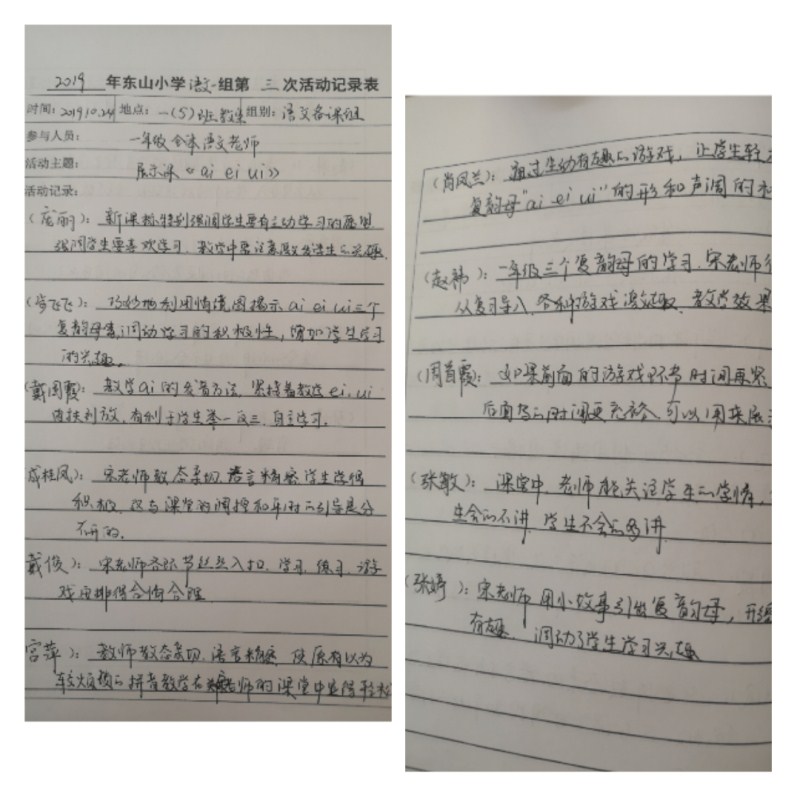 2019 年东山小学语文一组第 三 次活动记录表
时间: 2019.10.24 地点: 一(5)班教室 组别: 语文备课组
参与人员: 一年级全体语文老师
活动主题: 展示课《ai ei ui》
活动记录:
(庞丽): 新课标特别强调学生要有主动学习的愿望
强调学生要喜欢学习. 教学中要注意激发学生的兴趣.
飞飞): 巧妙地利用情境图揭示 ai ei ui 三个
复韵母, 调动学习的积极性, 增加学生学习
的兴趣。
(戴国霞): 教学 ai 的发音方法, 紧接着教学 ei、ui
由扶到放, 有利于学生举一反三、自主学习.
成桂凤): 宋老师教态亲切, 语言精炼 学生学得
积极, 这与课堂的调控和及时的引导是分
不开的.
戴俊): 宋老师各环节丝丝入扣, 学习、练习、游
戏安排得合情合理
宫萍): 教师教态亲切、语言精炼 使原有以为
较烦琐的拼音教学在宋老师的课堂中显得轻松
(肖凤兰): 通过生动有趣的游戏, 让学生轻
复韵母"ai ei ui"的形和声调的
(赵韩): 一年级三个复韵母的学习. 宋老师
从复习导入, 各种游戏激趣, 教学效果
(周首霞): 如果前面的游戏环节时间再紧
后面写的时间更充裕、可以用来展
(张敏): 课堂中, 老师能关注学生的学情,
生会的不讲, 学生不会的多讲.
(张婷): 宋老师用小故事引出复韵母,
有趣 调动了学生学习兴趣